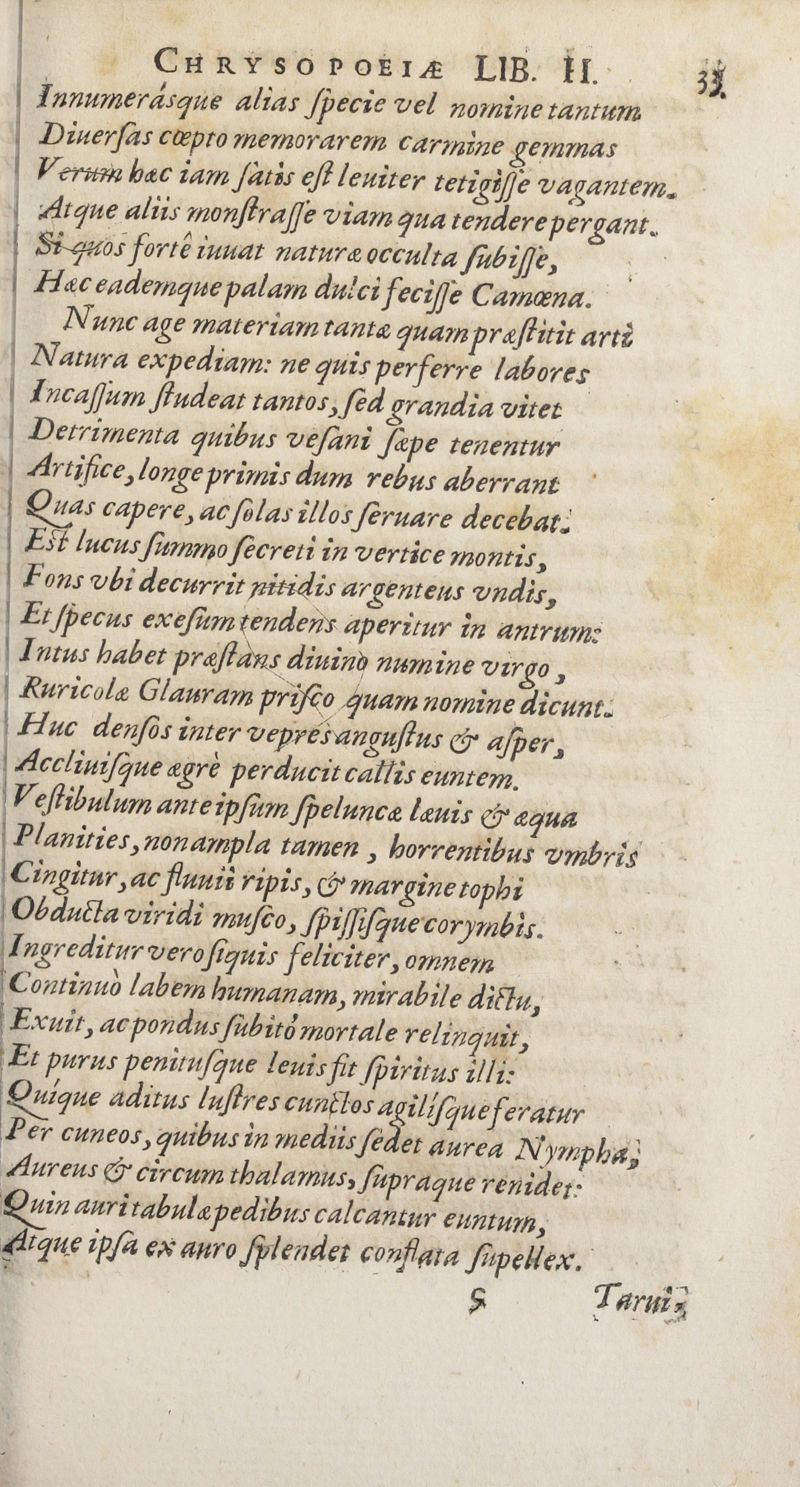 CHRYSOPOEIÆ LIB. II. 33
Innumerásque alias ſpecie vel nomine tantum
Diuerſas cœpto memorarem carmine gemmas
Verum hæc iam ſatis eſt leuiter tetigiſſe vagantem.
Atque aliis monſtraſſe viam qua tendere pergant.
Si quos fortè iuuat naturæ occulta ſubiſſe,
Hæc eademque palam dulci feciſſe Camœna.
Nunc age materiam tantæ quam præſtitit arti
Natura expediam: ne quis perferre labores
Incaſſum ſtudeat tantos, ſed grandia vitet
Detrimenta quibus veſani ſæpe tenentur
Artifice, longe primis dum rebus aberrant
Quas capere, ac ſolas illos ſeruare decebat.
Eſt lucus ſummo ſecreti in vertice montis,
Fons vbi decurrit nitidis argenteus vndis,
Et ſpecus exeſum tendens aperitur in antrum:
Intus habet præſtans diuino numine virgo,
Ruricolæ Glauram priſco quam nomine dicunt.
Huc denſos inter veprés anguſtus & aſper,
Accliuiſque ægrè perducit callis euntem.
Veſtibulum ante ipſum ſpeluncæ læuis & æqua
Planities, non ampla tamen, horrentibus vmbris
Cingitur, ac fluuii ripis, & margine tophi
Obducta viridi muſco, ſpiſſiſque corymbis.
Ingreditur vero ſiquis feliciter, omnem
Continuò labem humanam, mirabile dictu,
Exuit, ac pondus ſubitó mortale relinquit,
Et purus penituſque leuis fit ſpiritus illi:
Quique aditus luſtres cunctos agiliſque feratur
Per cuneos, quibus in mediis ſedet aurea Nympha;
Aureus & circum thalamus, ſupraque renidet:
Quin auri tabulæ pedibus calcantur euntum,
Atque ipſa ex auro ſplendet conflata ſupellex.